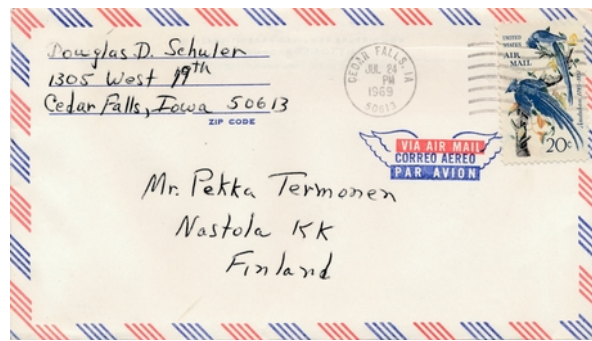 Douglas D. Schuler
1305 West 19th
Cedar Falls, Iowa 50613
ZIP CODE
CEDAR FALLS, IA
JUL 24
PM
1969
50613
UNITED
STATES
AIR
MAIL
20c
VIA AIR MAIL
CORREO AEREO
PAR AVION
Mr. Pekka Termonen
Nastola KK
Finland